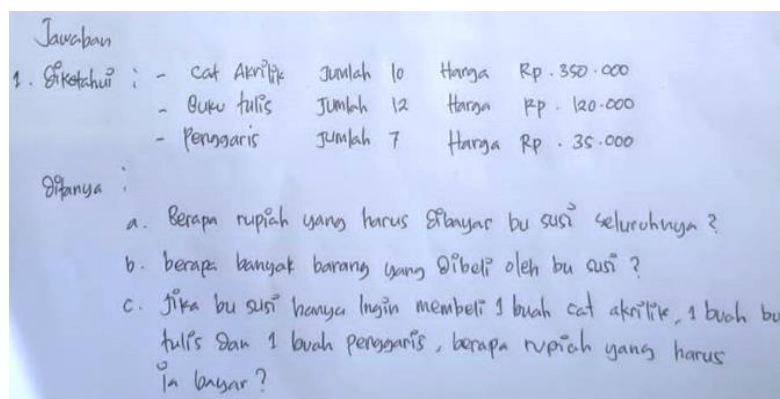 Jawaban
1. Diketahui : - Cat Akrilik Jumlah 10 Harga Rp. 350.000
- Buku tulis Jumlah 12 Harga Rp. 120.000
- Penggaris Jumlah 7 Harga Rp. 35.000
Ditanya :
a. Berapa rupiah yang harus dibayar bu susi seluruhnya ?
b. berapa banyak barang yang dibeli oleh bu susi ?
c. Jika bu susi hanya Ingin membeli 1 buah cat akrilik, 1 buah bu
tulis dan 1 buah penggaris, berapa rupiah yang harus
ia bayar ?